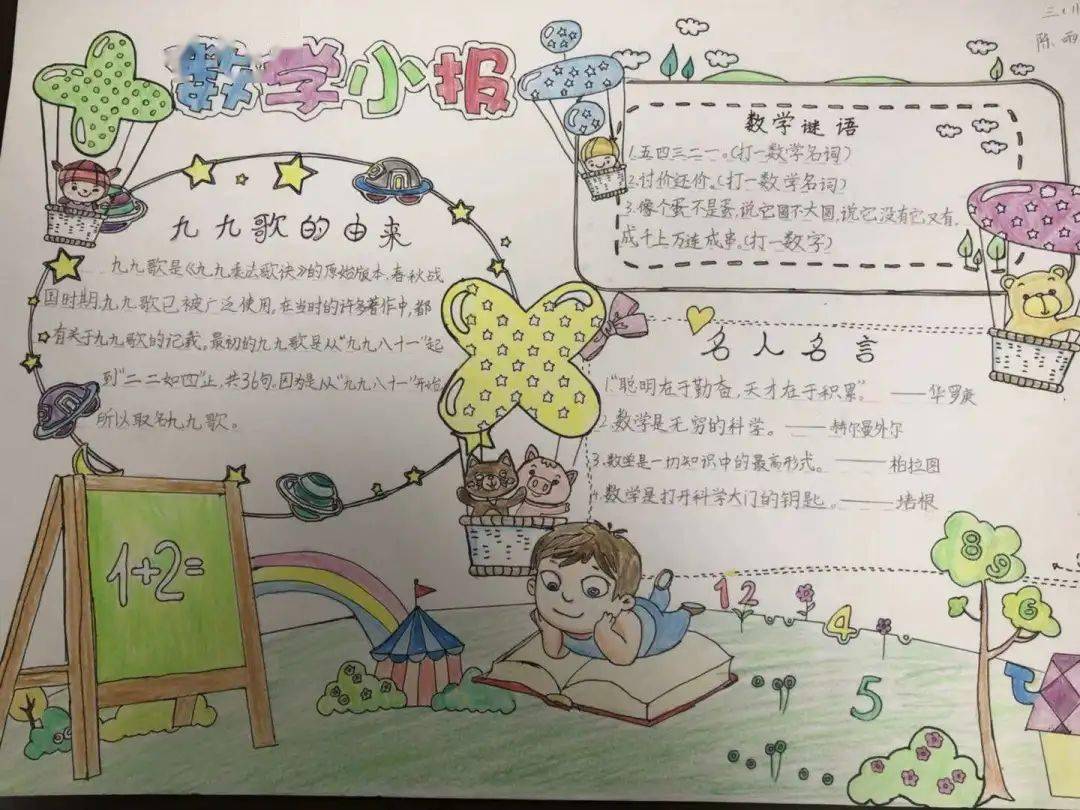 数学小报
陈雨
九九歌的由来
九九歌是《九九乘法歌诀》的原始版本.春秋战
国时期,九九歌已被广泛使用,在当时的许多著作中,都
有关于九九歌的记载。最初的九九歌是从“九九八十一”起
到“二二如四”止,共36句。因为是从“九九八十一”开始
所以取名九九歌。
数学谜语
1.五四三二一。(打一数学名词)
2.讨价还价。(打一数学名词)
3.像个蛋不是蛋,说它圆不大圆,说它没有它又有,
成千上万连成串。(打一数字)
名人名言
1.“聪明在于勤奋,天才在于积累”。——华罗庚
2.数学是无穷的科学。——赫尔曼外尔
3.数学是一切知识中的最高形式。——柏拉图
4.数学是打开科学大门的钥匙。——培根
1+2=
1 2
4
5
8 9
6